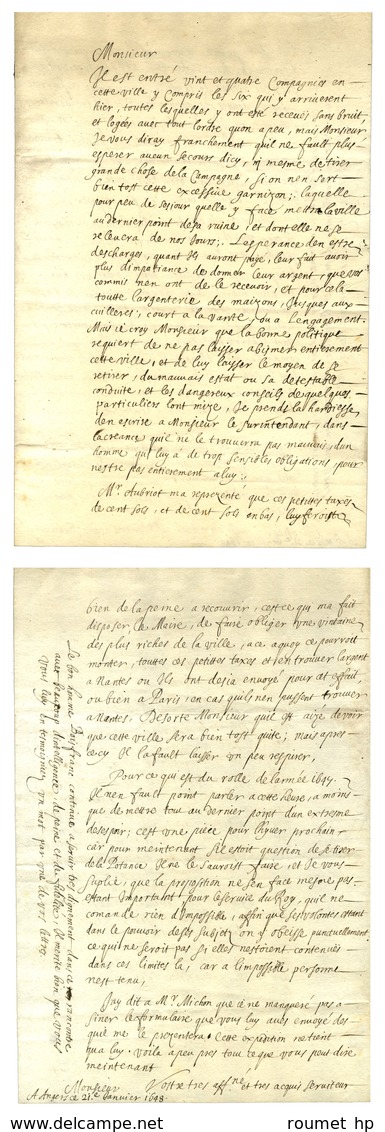 Monsieur
Il est entré vint et quatre Compagnies en
cette ville y Compris les six qui y arriverent
hier, toutes lesquelles y ont esté receues sans bruit
et logées avec tout lordre quon a peu, mais Monsieur
Je vous diray franchement quil ne fault plus
esperer aucun secours dicy, ny mesme de tirer
grande chose de la Campagne, si on nen sort
bien tost cette excessive garnizon; laquelle
pour peu de sesjour quelle y face mettra la ville
au dernier point de sa ruine, et dont elle ne se
relevera de nos Jours; Lesperance den estre
descharges, quant ils auront payé, leur fait avoir
plus dimpatiance de donner leur argent, que vos
commis nen ont de le recevoir, et pour cela
toutte largenterie des maizons, Jusques aux
cuilleres, court a la vante ou a lengagement.
Mais Je croy Monsieur que la bonne politique
requiert de ne pas laisser abismer entierement
cette ville, et de luy laisser le moyen de se
retirer, du mauvais estat ou sa detestable
conduite, et les dangereux conseils de quelques
particuliers lont mize, Je prends la hardiesse
den escrire a Monsieur le surintendant, dans
la creance quil ne le trouvera pas mauvais, dun
homme qui luy a de trop sensibles obligations pour
nestre pas entierement a luy;
Mr. Aubriot ma represente que ces petittes taxes
de cent sols, et de cent sols en bas, luy feroist
bien de la peine a recouvrir, cest ce qui ma fait
disposer le Maire, de faire obliger une vintaine
des plus riches de la ville, a ce a quoy ce pourroit
monter, touttes ces petittes taxes et en trouver largent
a Nantes ou Ils ont desia envoyé pour cet effait,
ou bien a Paris, en cas quils nen pussent trouver
a Nantes. De sorte Monsieur quil est aizé de voir
que cette ville sera bien tost quite; mais apres
cecy Il la fault laisser un peu respirer,
Pour ce qui est du rolle de larmée 1647.
Il nen fault point parler a cette heure, a moins
que de mettre tout au dernier point dun extreme
desespoir; cest une piece pour lhyver prochain,
car pour meintenant sil estoit question de se tirer
de la Potance Il ne le sauroist faire, et Je vous
suplie, que la proposition ne sen face mesme pas
estant Important pour le service du Roy, quil ne
comande rien dImpossible, affin que ses volontes estant
dans le pouvoir de ses subjetz on y obeisse punctuellement
ce qui ne seroit pas si elles nestoient contenues
dans ces limites la, car a limpossible personne
nest tenu,
Jay dit a Mr. Michon que Je ne manquerè pas a
siner le formulaire que vous luy aves envoyé des
quil me le presentera. Cette expedition ne tient
qua luy. Voila a peu pres tout ce que vous peut dire
meintenant
Monsieur Vostre tres affné et tres acquis serviteur
A Angers ce 21.e Janvier 1648
Le bon homme continue a servir tres dignement dans ce rancontre
avec beaucoup dintelligence, de peine et de fidelité, Il merite bien que vous
luy en tesmoigniez un mot par une de vos lettres
roumet hp